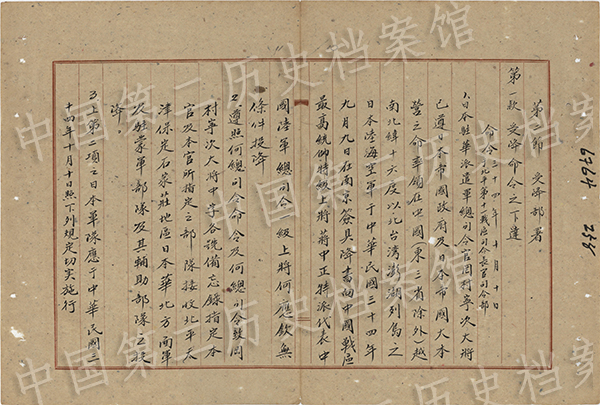 第二節 受降部署。
第一款 受降命令之下達
命令 三十四年十月十日
于北平第十一戰區司令長官司令部
1.日本駐華派遣軍總司令官岡村寧次大將
已遵日本帝國政府及日本帝國大本
營之命率領在中國（東三省除外）越
南北緯十六度以北台湾澎湖列島之
日本陸海空軍于中華民國三十四年
九月九日在南京簽具降書向中國戰區
最高統帥特級上將蔣中正特派代表中
國陸軍總司令一級上將何應欽無
條件投降
2.遵照何總司令命令及何總司令致岡
村寧次大將中字各號備忘錄指定本
官及本官所指定之部隊接收北平天
津保定石家莊地區日本華北方面軍
及駐蒙軍部隊及其輔助部隊之投
降。
3.上第二項之日本軍隊應于中華民國三
十四年十月十日照下列規定切實施行
中国第二历史档案馆
中国第二历史档案馆
中国第二历史档案馆